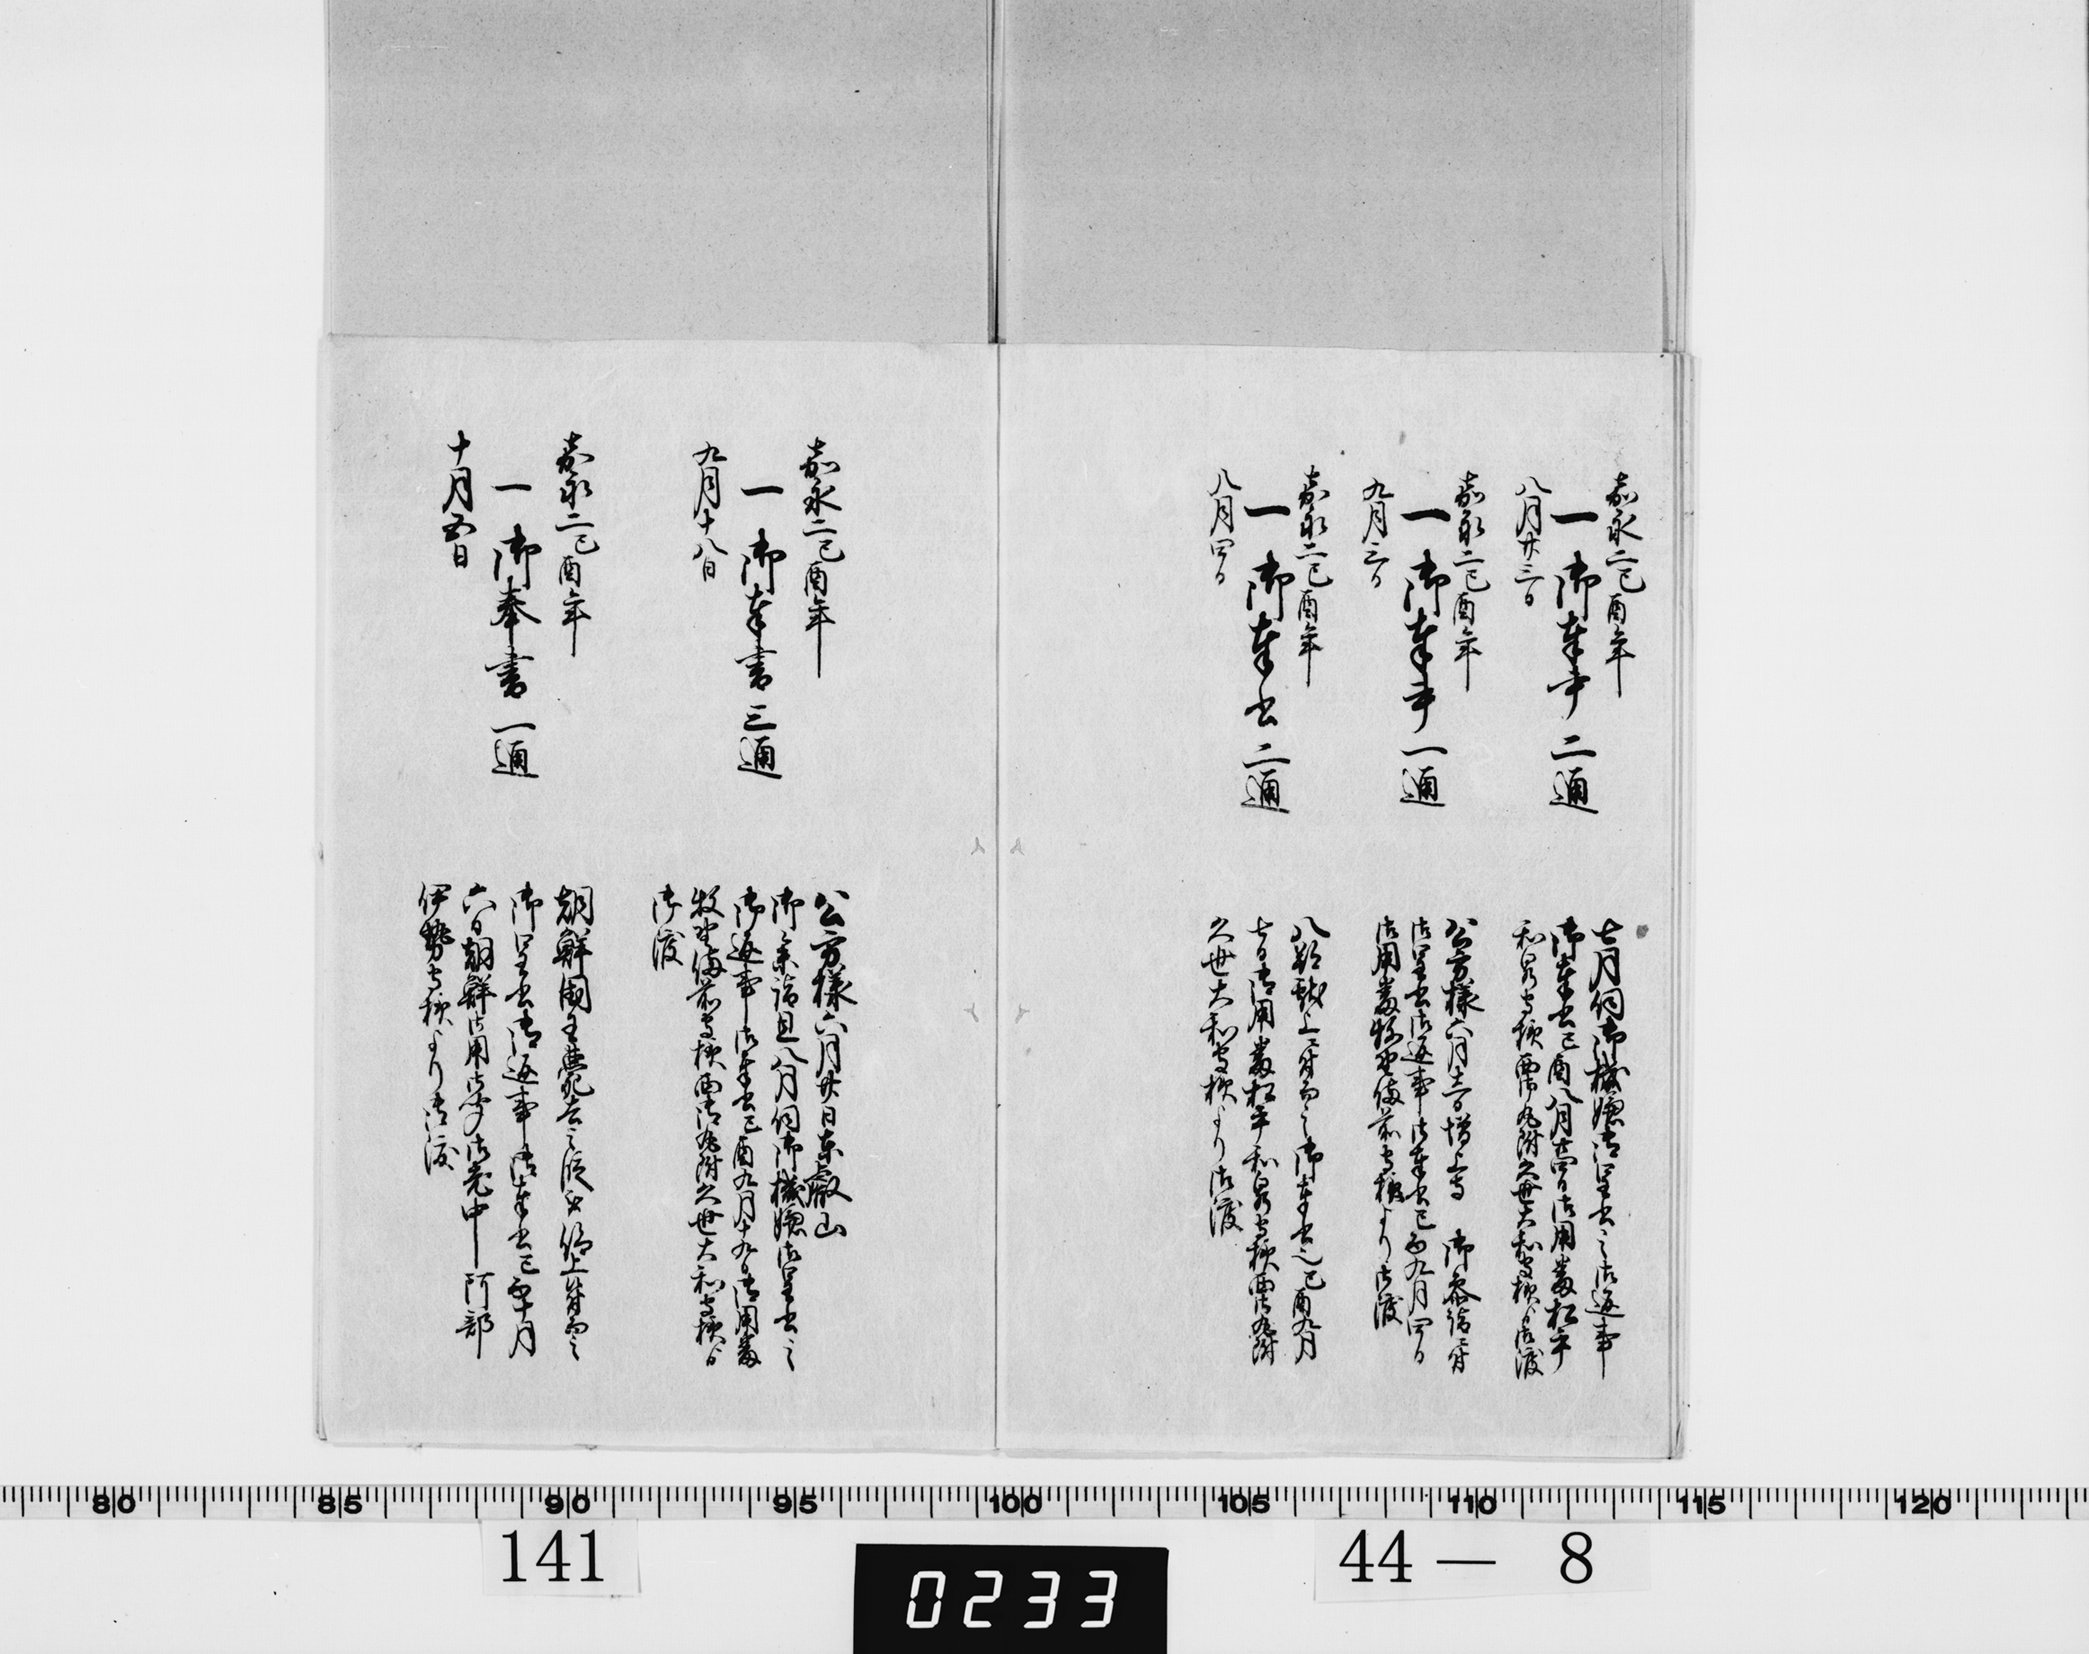 嘉永二己酉年
一御奉書二通
八月廿三日
七月伺御機嫌御呈書之御返事
御奉書己酉八月廿四日御用番松平
和泉守様西御丸附久世大和守様ゟ御渡
嘉永二己酉年
一御奉書一通
九月三日
公方様六月 増上寺 御参詣ニ付
御呈書御返事御奉書己酉九月四日
御用番牧野備前守様より御渡
嘉永二己酉年
一御奉書二通
八月四日
八朔 献上ニ付而之御奉書 己酉九月
七日御用番松平和泉守様西御丸附
久世大和守様より御渡
嘉永二己酉年
一御奉書三通
九月十八日
公方様六月廿日東叡山
御参詣且八月伺御機嫌御呈書之
御返事御奉書己酉九月十九日御用番
牧野備前守様西御丸附久世大和守様ゟ
御渡
嘉永二己酉年
一御奉書一通
十月五日
朝鮮国王薨去之 上候付而之
御呈書御返事御奉書己酉十月
六日朝鮮御用 御老中阿部
伊勢守様より御渡
80 85 90 95 100 105 110 115 120
141
0233
44— 8